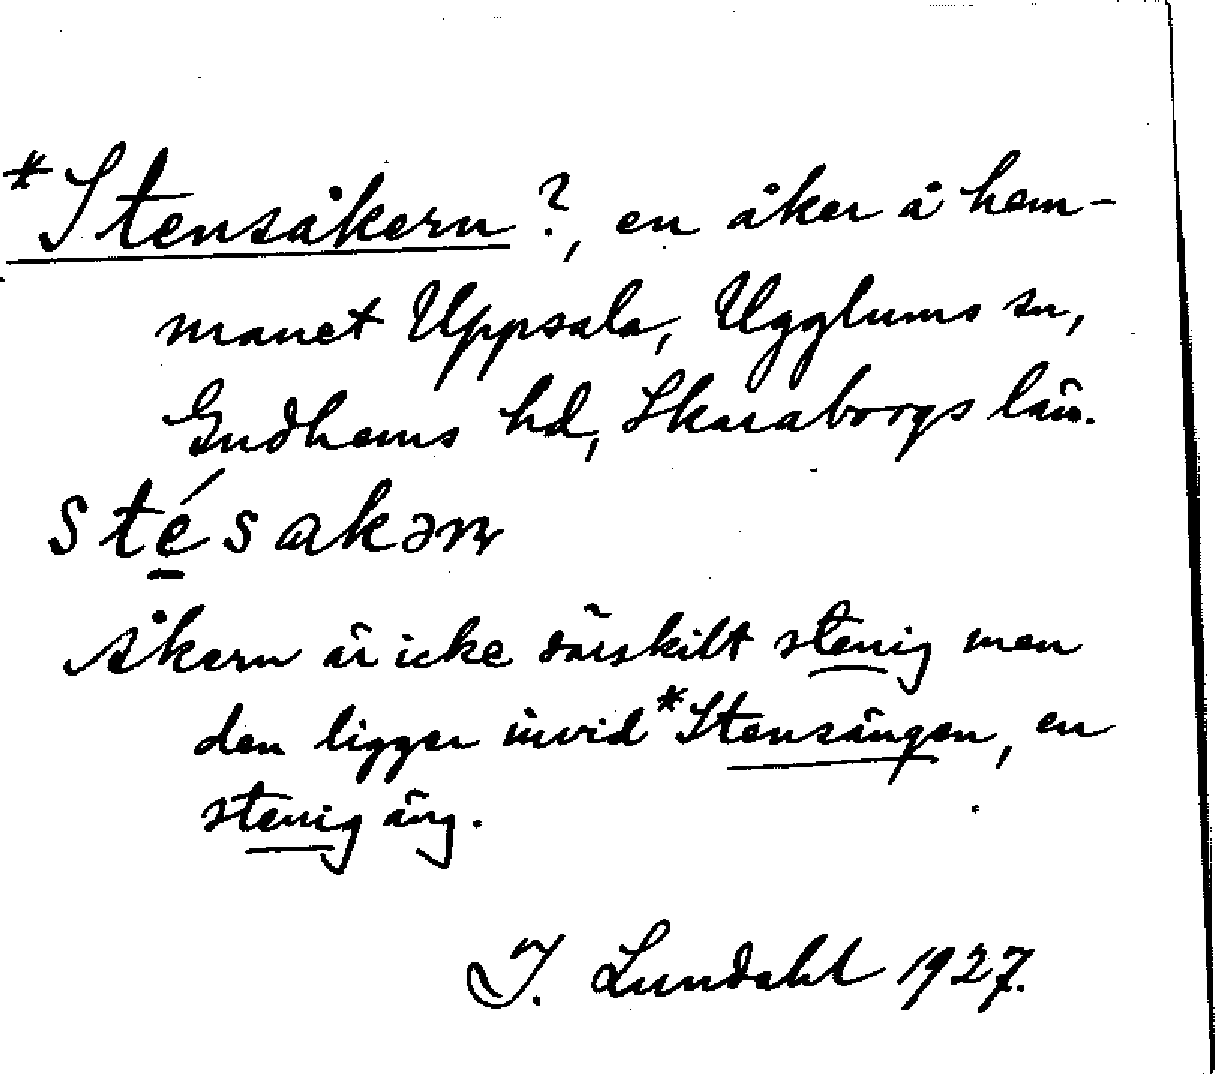 *Stensåkern?, en åker å hem-
manet Uppsala, Ugglums sn,
Gudhems hd, Skaraborgs län.
stésakəɲ
Åkern är icke särskilt stenig men
den ligger invid *Stensängen, en
stenig äng.
I. Lundahl 1927.